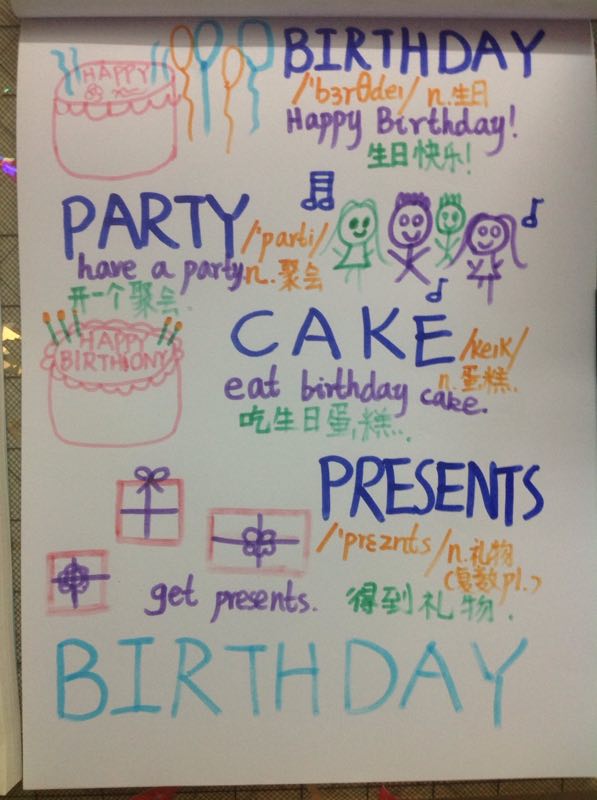 HAPPY
BIRTHDAY
/'bɜrθdeɪ/ n.生日
Happy Birthday!
生日快乐!
PARTY
/'parti/
have a party n.聚会
开一个聚会.
HAPPY
BIRTHIONY
CAKE
/keɪk/
n.蛋糕.
eat birthday cake.
吃生日蛋糕.
PRESENTS
/'prɛznts/
n.礼物
(复数pl.)
get presents. 得到礼物.
BIRTHDAY